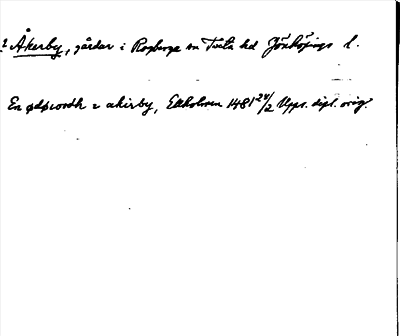 2 Åkerby, gårdar i Rogberga sn Tveta hd Jönköpings l.
En ødhiordh i akirby, Ekholmen 1481 24/2 Upps. dipl. orig.